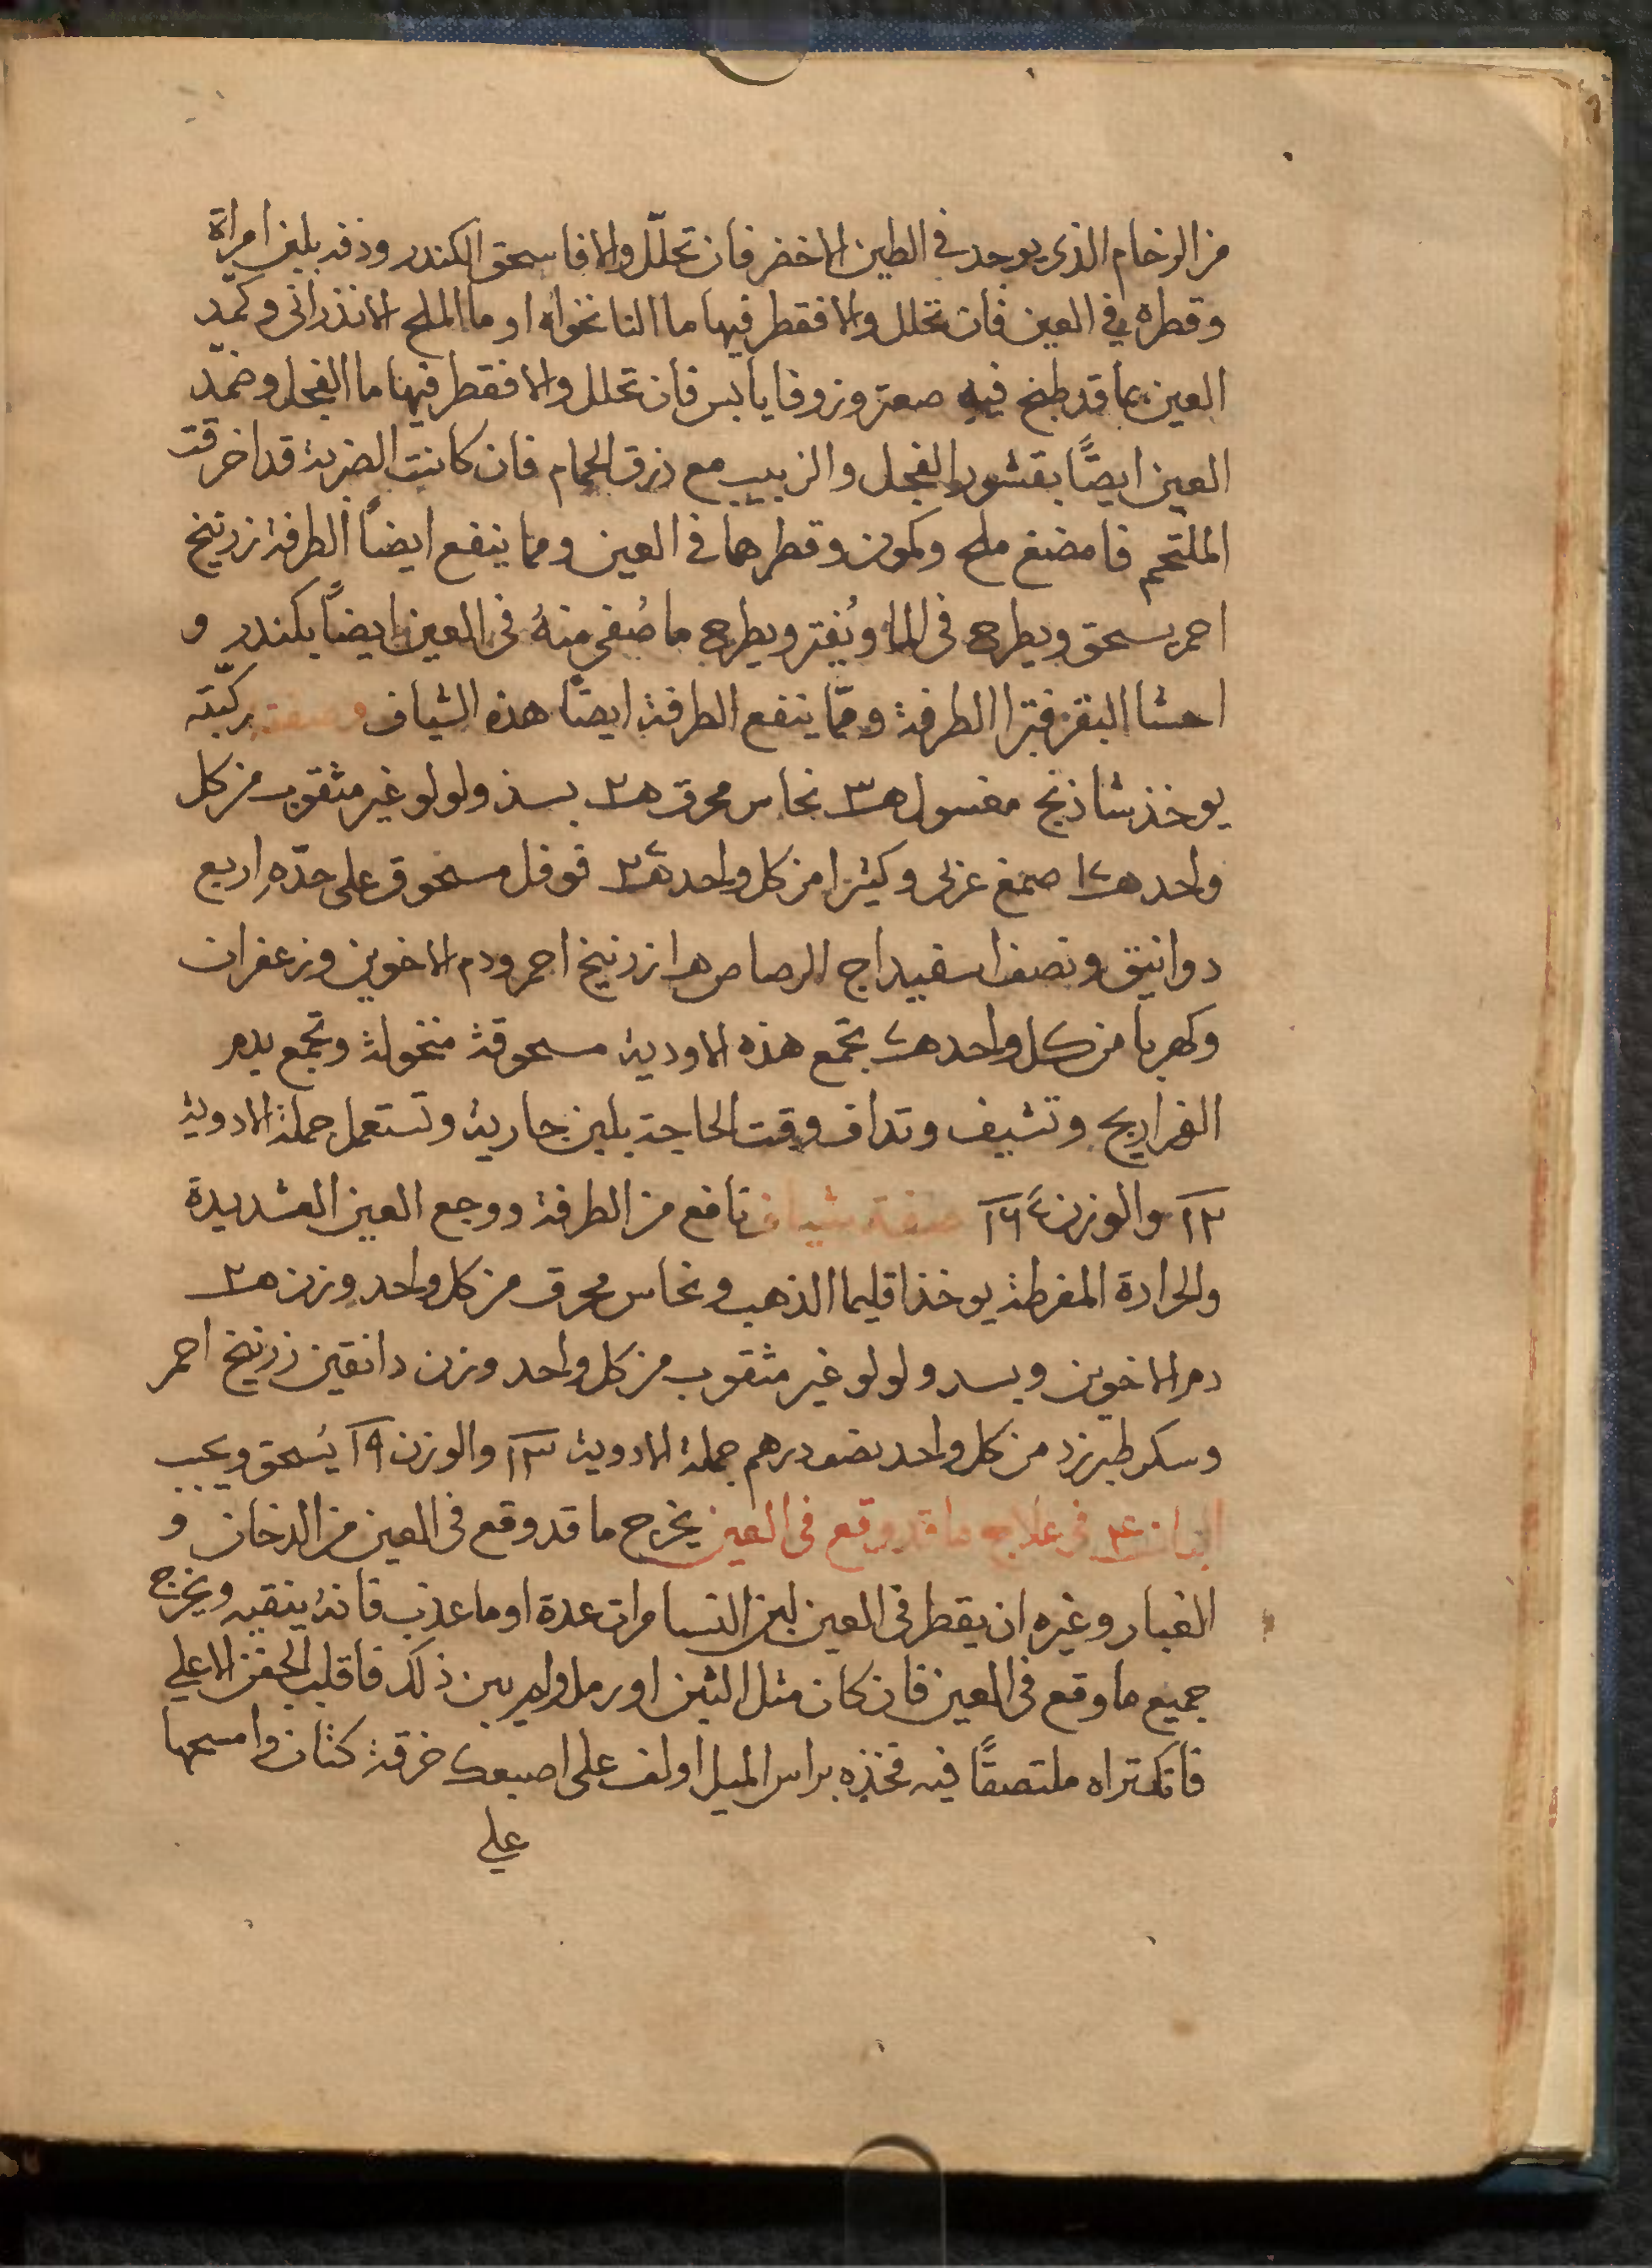 من الرخام الذى يوجد في الطين الاخضر فان تحلّل والا فاسحق الكندر وذفه بلبن امراة
وقطره في العين فان تحلل والا فقطر فيها ما النانخواه او ما الملح الانذرانى وكمّد
العين بما قد طبخ فيه صعتر وزوفا يابس فان تحلل والا فقطر فيها ما الفجل وضمّد
العين ايضًا بقشور الفجل والزبيب مع ذرق الحمام فان كانت الضربة قد اخرقت
الملتحم فامضغ ملح وكمون وقطرهما في العين ومما ينفع ايضًا الطرفة زرنيخ
احمر يسحق ويطرح فى الما ويُفتر ويطرح ما صُفي منهُ فى العين ايضًا بكندر و
احشا البقر فتبرا الطرفة وممّا ينفع الطرفة ايضًا هذه الشياف وصفته بركبّته
يوخذ شاذنج مغسول هـ٣ نحاس محرق هـ٢ بسذ ولولو غير مثقوب من كل
واحد صمغ عربى وكثيرا من كل واحد فوفل مسحوق على حدّه اربع
دوانيق ونصف اسفيداج الرصاص هـ١ زرنيخ احمر ودم الاخوين وزعفران
وكهربا من كل واحد تجمع هذه الاودية مسحوقة منخولة وتجمع بدم
الفراريج وتشيف وتداف وقت الحاجة بلبن جارية وتستعمل جملة الادوية
١٢ والوزن صفة شياف نافع من الطرفة ووجع العين الشديدة
والحرارة المفرطة يوخذ اقليما الذهب ونحاس محرق من كل واحد وزن هـ٢
دم الاخوين وبسد ولولو غير مثقوب من كل واحد وزن دانقين زرنيخ احمر
وسكر طبرزد من كل واحد نصف درهم جملة الادوية ١٣ والوزن ١٩ يُسحق ويحبب
الباب فى علاج ما قد وقع فى العين يخرج ما قد وقع فى العين من الدخان و
الغبار وغيره ان يقطر فى العين لبن النسا مرات عدة او ما عذب فانهُ ينقيه ويخرج
جميع ما وقع فى العين فان كان مثل التبن او رمل ولم يبن ذلك فاقلب الجفن الاعلي
فانك تراه ملتصقًا فيه فخذه براس الميل او لف على اصبعك خرقة كتان وامسحها
علي